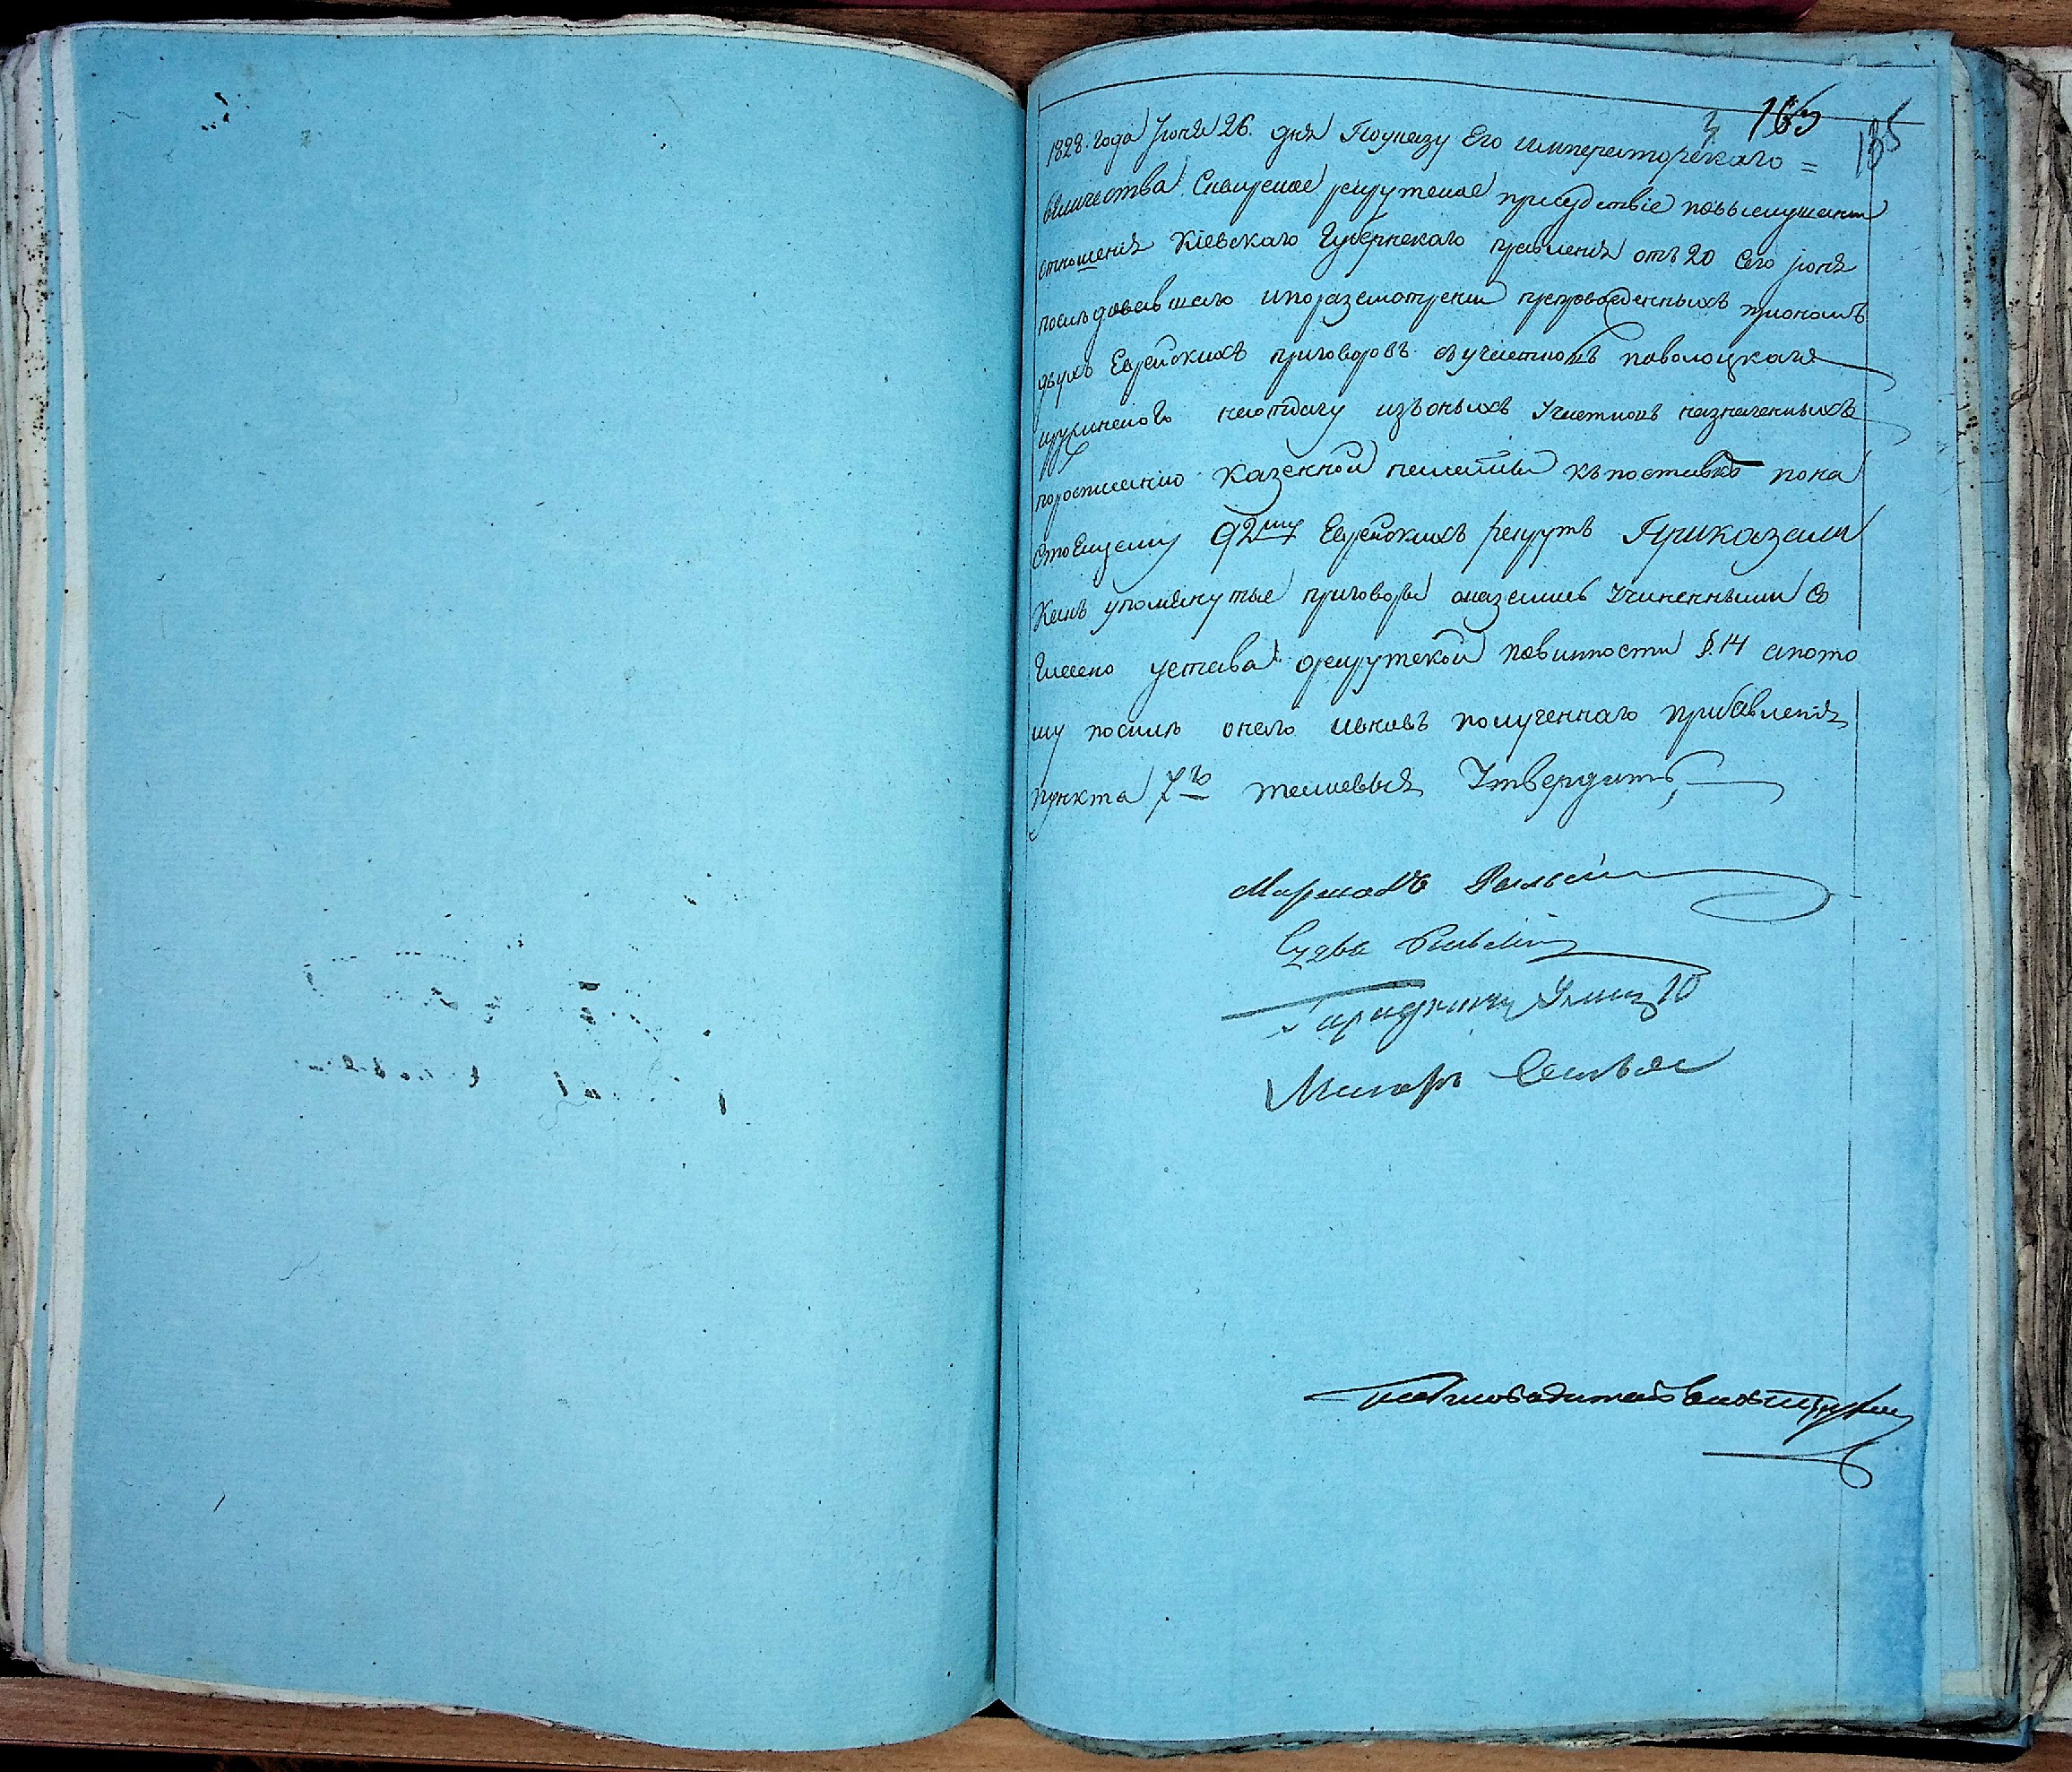 163
135
1828. года Июня 26. дня Поуказу Его императорскаго =
величества Сквирское рекрутское присудствіе повыслушаніи
отношенія Кіевскаго Губернскаго правленія отъ 20 сего Июня
последовавшаго ипоразсмотреніи препровожденныхъ приономъ
двухъ Еврейскихъ приговоровъ съучастковъ паволоцкаго
наотдачу изъоныхъ Участковъ назначенныхъ
поросписанію Казенной палаты къпоставке пона
стоящему 92му Еврейскихъ рекрутъ Приказали
Какъ упомянутые приговоры оказались Учиненными со
гласно устава орекрутской повинности §. 14 апото
му посиле онаго ивновь полученнаго прибавленія
пункта 7го таковыя Утвердить,
Маршалъ
Судья